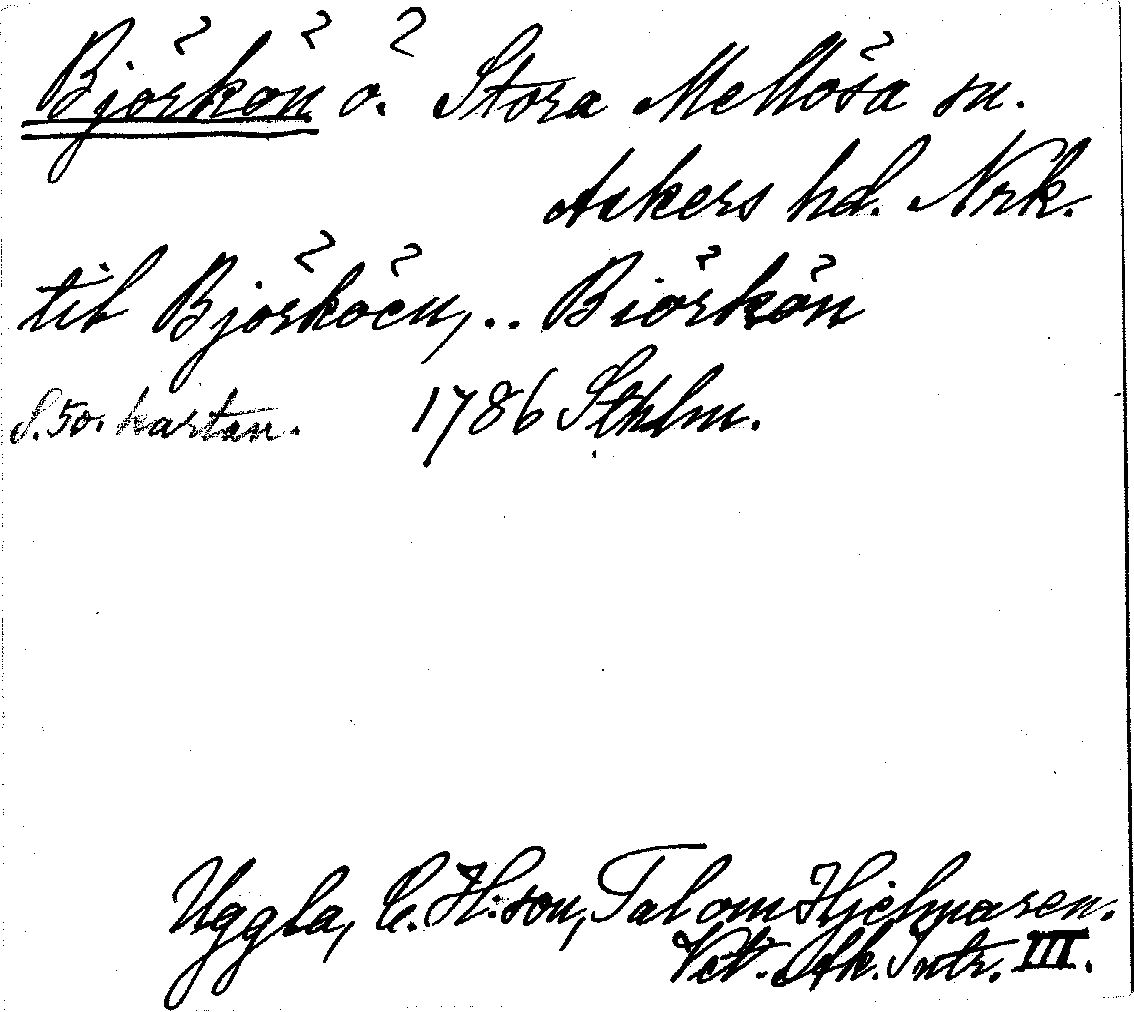 Björkön ö. Stora Mellösa sn.
Askers hd. Nrk.
till Björköen, .. Biörkön
S. 50. kartan. 1786 Sthlm.
Uggla, C. H:son, Tal om Hjelmaren.
Vet. Ak. Intr. III.